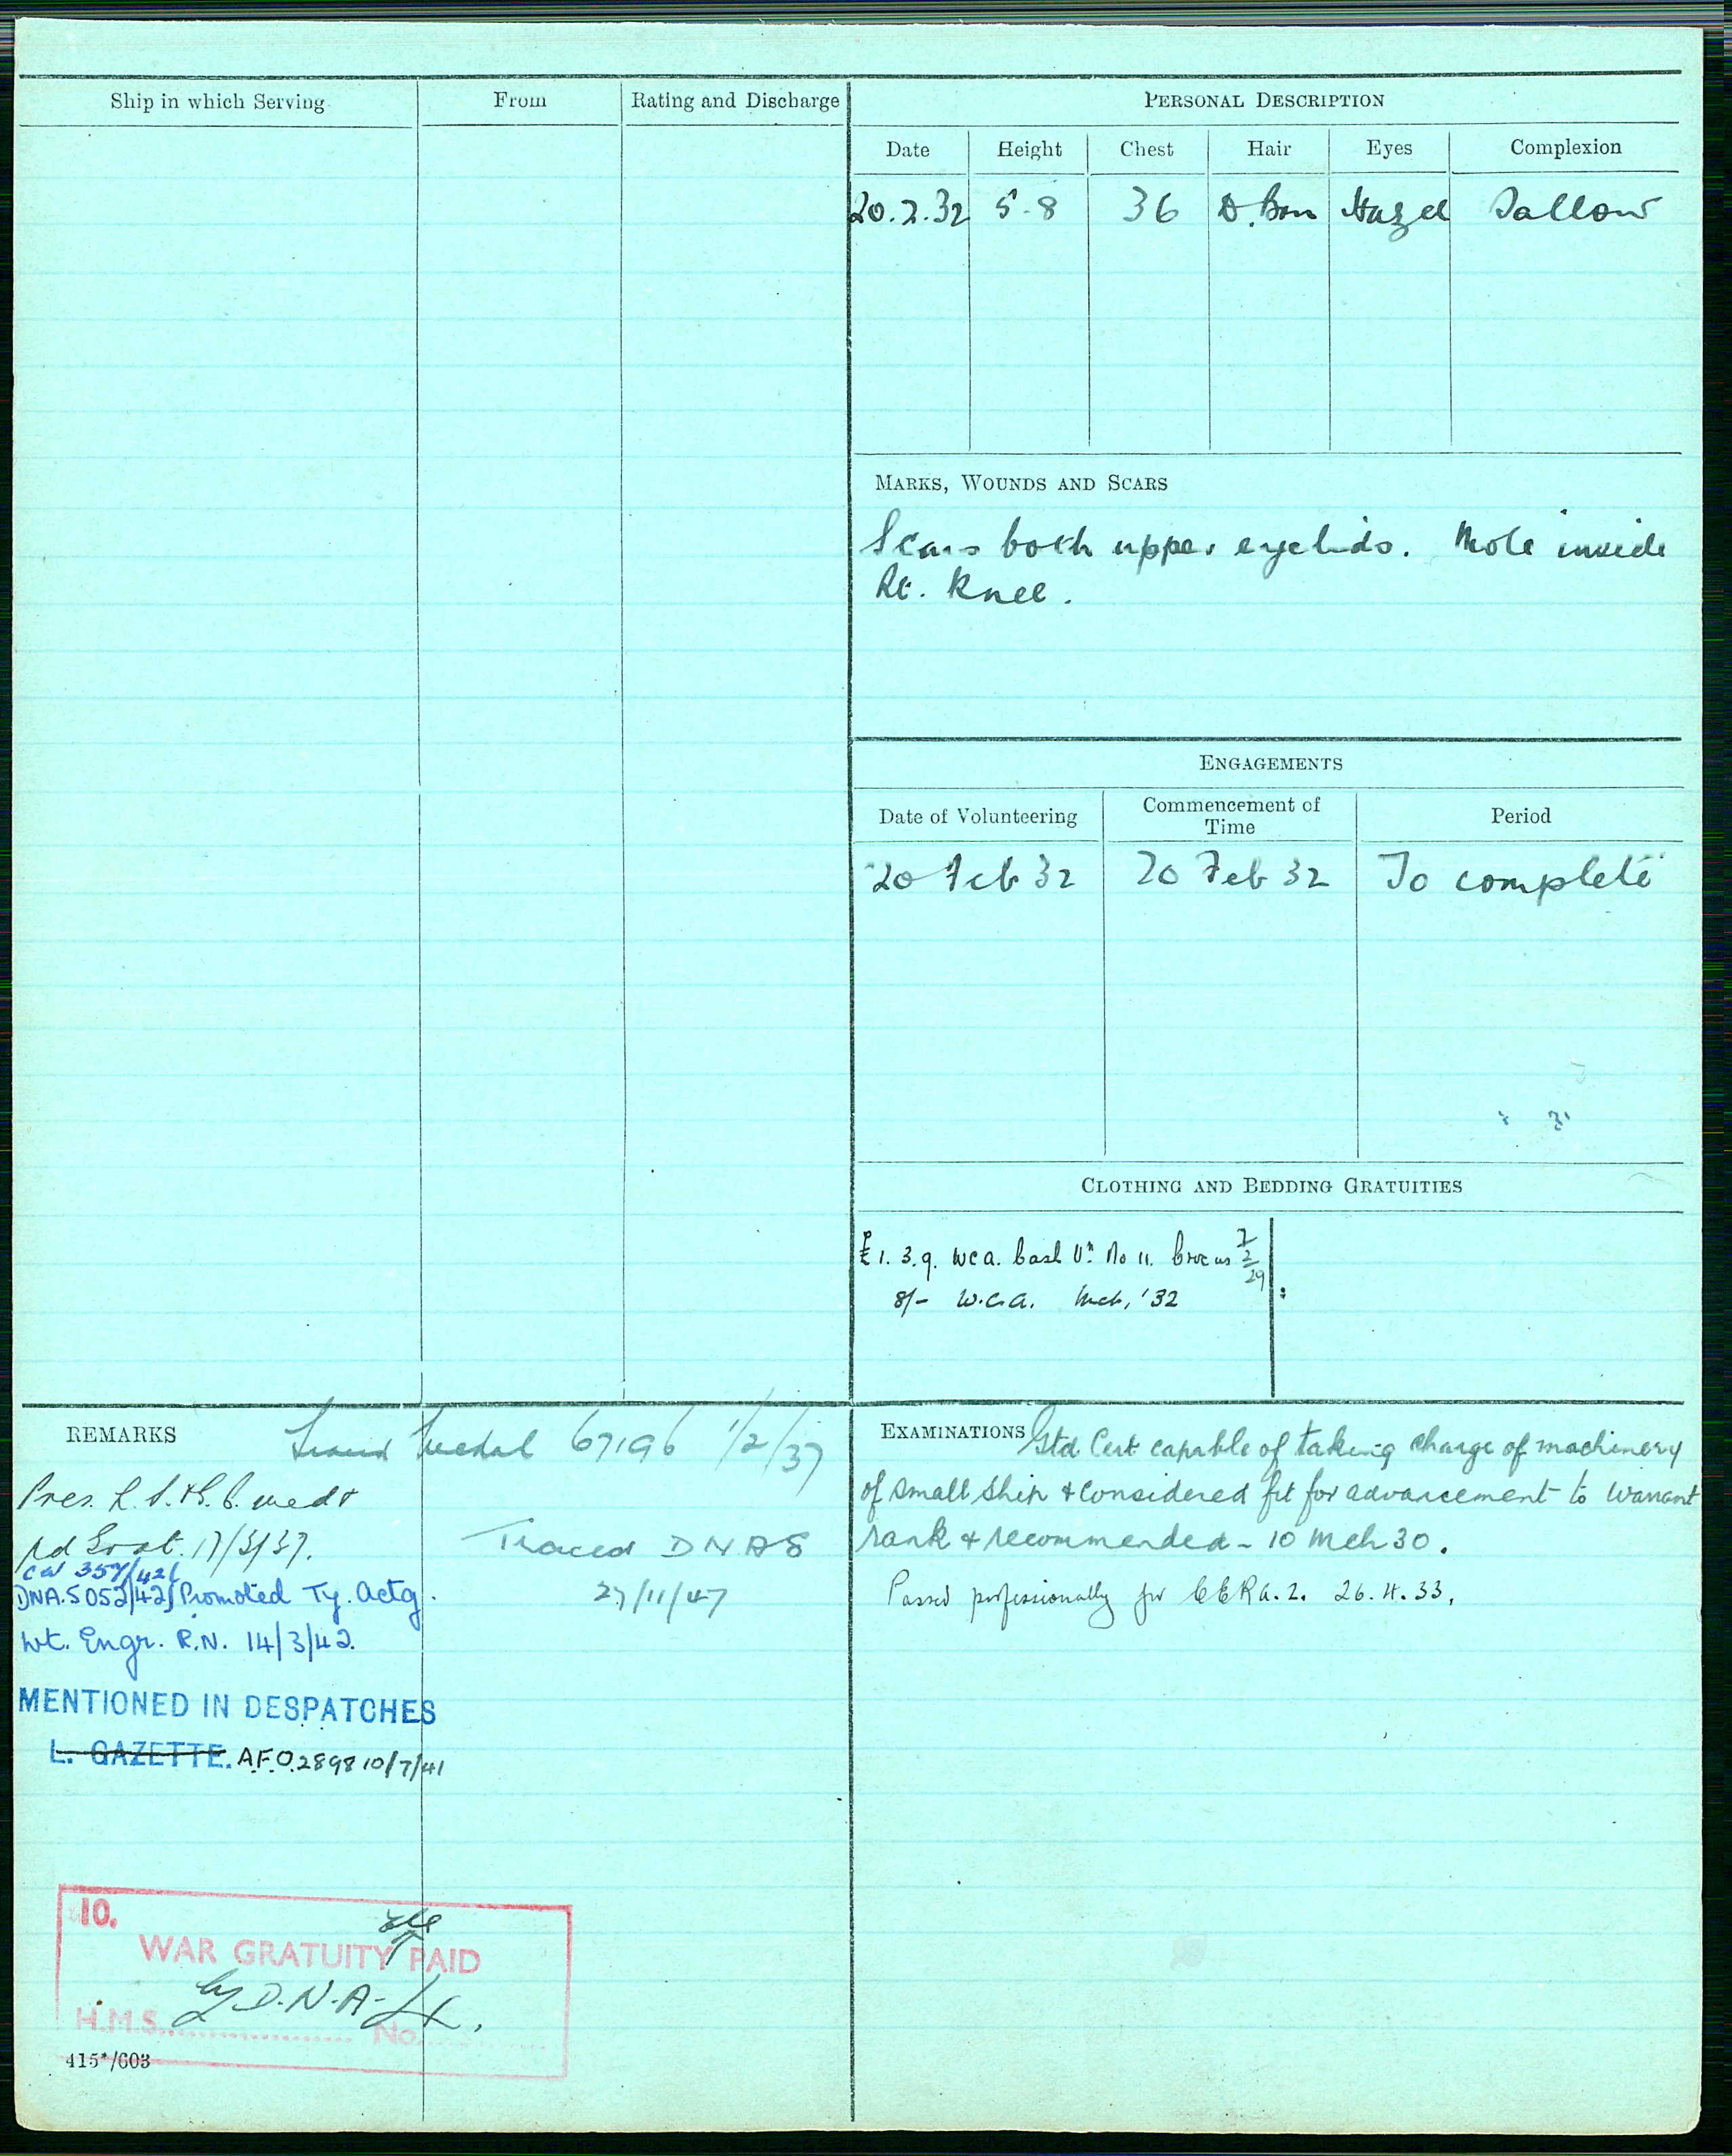 Ship in which Serving From Rating and Discharge
PERSONAL DESCRIPTION
Date Height Chest Hair Eyes Complexion
20.2.32 5-8 36 D. Brn Hazel Sallow
MARKS, WOUNDS AND SCARS
Scars both upper eyelids. Mole inside
Rt. Knee.
ENGAGEMENTS
Date of Volunteering Commencement of Time Period
20 Feb 32 20 Feb 32 To complete
CLOTHING AND BEDDING GRATUITIES
£1. 3. 9. WCA. No 11. 29
8/- W.C.A. Mch, '32
REMARKS
Medal 67196 1/2/37
Pres. L.S. & G.C. medl
pd Grat. 17/3/37.
Traced DNAS
27/11/47
CW 357/42
DNA. 5052/42 Promoted Ty. Actg.
Wt. Engr. R.N. 14/3/42.
MENTIONED IN DESPATCHES
L. GAZETTE. A.F.O. 2898 10/7/41
10.
WAR GRATUITY PAID
by D.N.A.
H.M.S. No.
415*/603
EXAMINATIONS Gtd Cert capable of taking charge of machinery
of small ship & considered fit for advancement to Warrant
rank & recommended - 10 Mch 30.
Passed professionally for CERA. 2. 26.4.33.